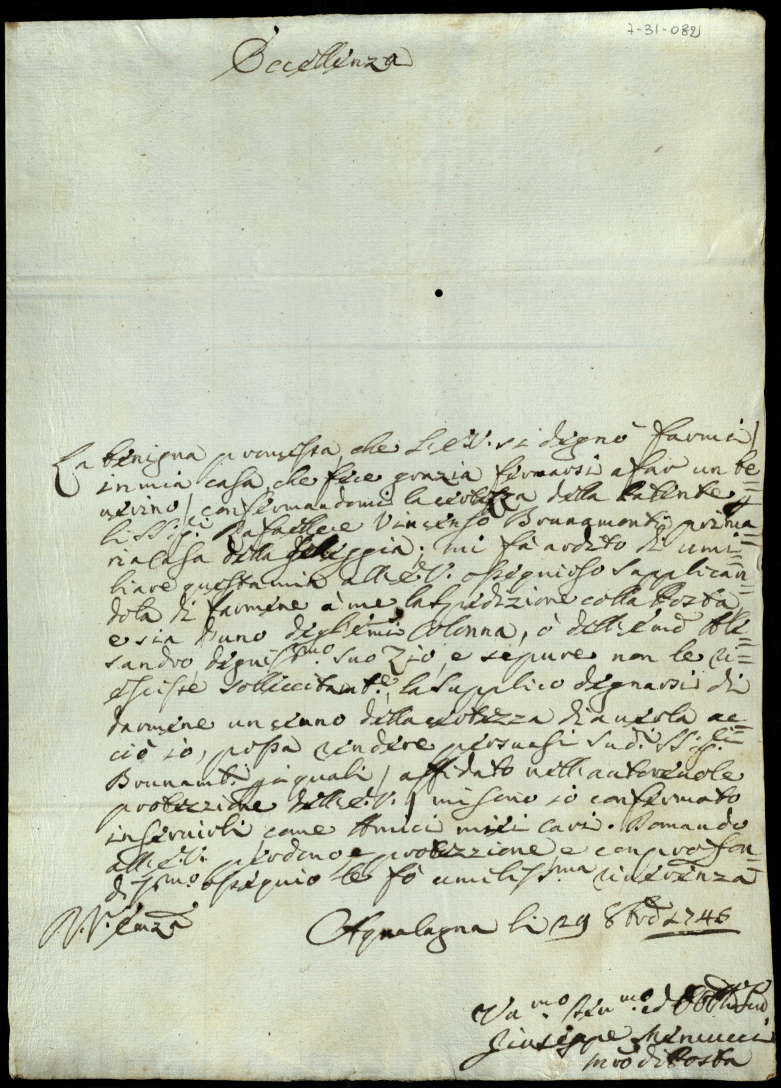 7-31-082
Eccellenza
La benigna promessa, che L'E.V. si degnò farmi/
in mia casa che fece grazia fermarsi a far un be=
uerino/ confermandomi la certezza della Patente
li SS:ri Raffaelle e Vincenzo Brunamonti prima=
ria Casa della Scheggia; mi fà ardito di umi=
liare questa mia all'E.V. ossequioso supplican=
dola di farmene à me la spedizione colla Posta
e sia d'uno degl'Emi Colonna, ò dell'Emo Ale=
sandro dignissmo suo Zio, e sepure non le ri=
escisse sollecitamte, la supplico degnarsi di
darmene un cenno della certezza di auerla ac=
ciò io, possa rendere persuasi sudi SS:ri
Brunamti, quali/ affidato nell'autoreuole
protezzione dell'E.V./ mi sono io confermato
in seruirli come Amici miei cari. Domando
all'E.V. perdono e protezzione e con profon=
dissmo ossequio le fò umilissma riuerenza
D.V. Emza
Aqualagna li 29 8bre 1746
Vmo Deumo ed Obblmo Serud
Giuseppe Menucci
mro di Posta